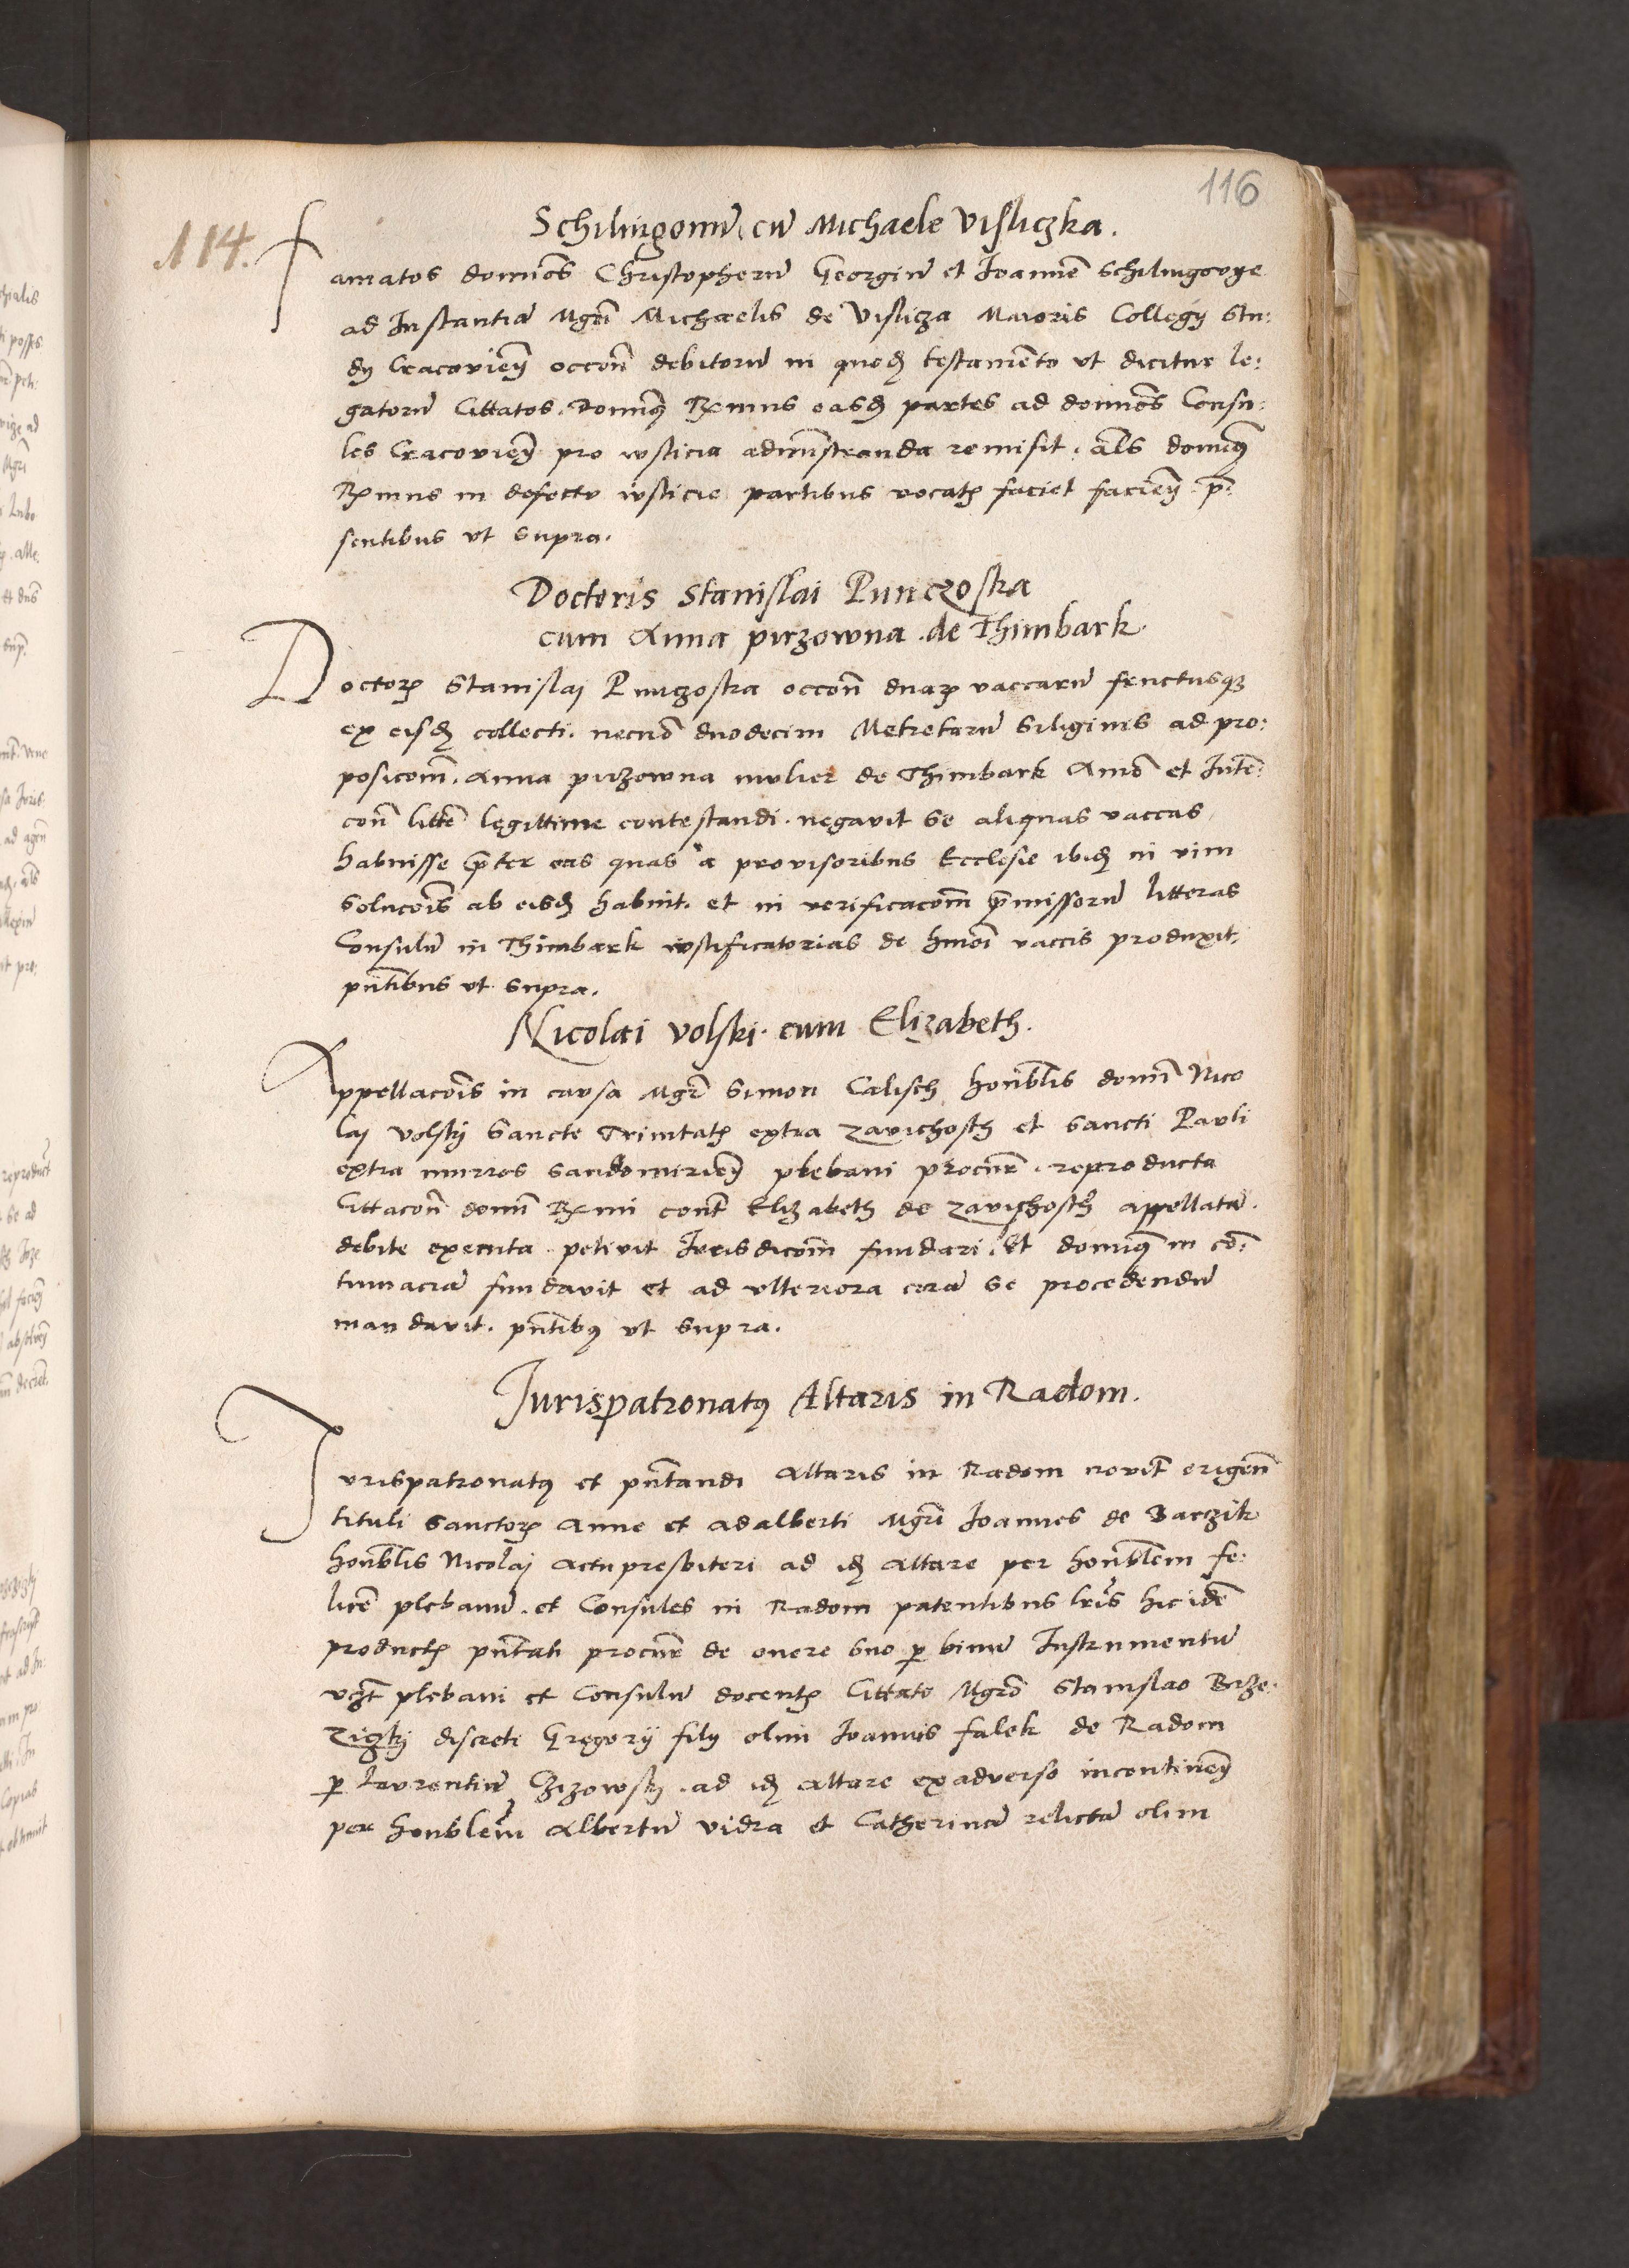 116
114.
Schilingonū cū Michaele Visliczka.
Famatos dominos Christopherū Georgiū et Ioannē Schilingowye
ad Instantiā Mgri Michaelis de Vislicza Maioris Collegÿ Stu:
dÿ Cracovieñ occoñ debitorū in quod testamento ut dicitur le:
gatorū Cittatos. Dominq Rmus easd partes ad dominos Consu:
les Cracovieñ pro iusticia administranda remisit. als dominq
Rmus in defectu iusticie partibus vocat faciet facieñ p̄:
sentibus ut supra.
Doctoris Stanislai Punczoska
cum Anna pirzowna de Thimbark
Doctor Stanislai Punczoska occoñ duar vaccarū fructusq
ex eisd collecti. necnō duodecim Metretarū siliginis ad pro:
posicom̄. Anna pirzowna mulier de Thimbark Anīo et Intē:
coñ littē legittime contestandi. negavit se aliquas vaccas
habuisse p̄ter eas quas a provisoribus Ecclesie ibid in vim
solucois ab eisd habuit. et in verificacom̄ p̄missorū litteras
Consulū in Thimbark iustificatorias de hmōi vaccis produxit.
pn̄tibus ut supra.
Nicolai volski. cum Elizabeth.
Appellacois in causa Mgr Simon Calisch honblis domi Nico
laj volskÿ Sancte Trinitat extra zavichosth et sancti Pauli
extra murros sandomirieñ plebani procur. reproducta
Cittacoñ domī Rmi cont Elizabeth de zavichosth appellatā.
debite executa. petivit Iurisdicom̄ fundari. Et dominq in cō:
tumaciā fundavit et ad ulteriora corā se procedendū
mandavit. pn̄tibq ut supra.
Iurispatronatq Altaris in Radom.
Iurispatronatq et pn̄tandi Altaris in Radom novit erigeñ
tituli Sanctor Anne et Adalberti Mgri Ioannes de Barzik
honblis Nicolaj Actu presbiteri ad id Altare per honblem fe:
licē plebanū. et Consules in Radom patentibus lris hic idē
product pn̄tati procur de onere suo p binū Instrumentū
vzt plebani et Consulū docent Cittato Mgro Stanislao Brze:
ziczkj discreti Gregorÿ filÿ olim Ioannis falek de Radom
p Laurentiū Czizowskj. ad id Altare exadverso incontineñ
per honblem Albertū vidra et Catherinā relictā olim